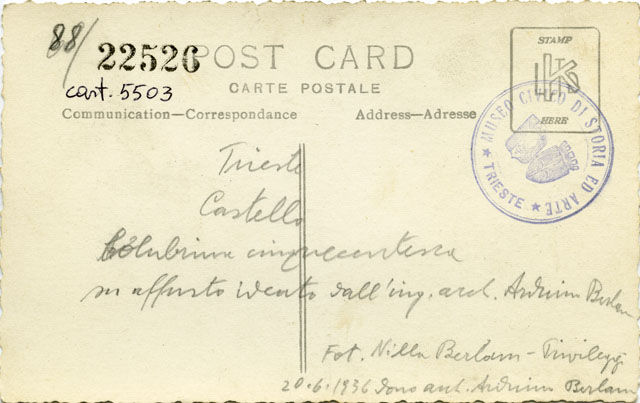 88/
22526 POST CARD
cart. 5503
CARTE POSTALE
Communication—Correspondance
Address—Adresse
STAMP
HERE
MUSEO CIVICO DI STORIA ED ARTE
★ TRIESTE ★
Trieste
Castello
Colubrina cinquecentesca
su affusto ideato dall'ing. arch. Arduino Berlam
Fot. Nilla Berlam - Tivilegg
20.6.1936 Dono arch. Arduino Berlam